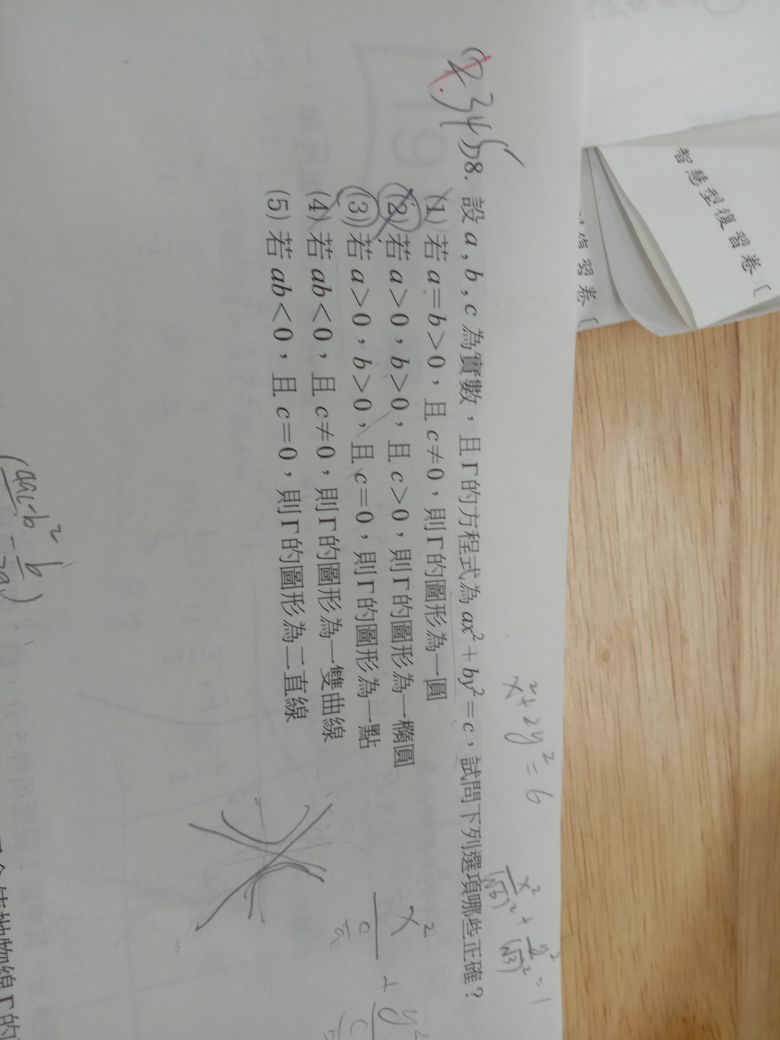 智慧型復習卷〔
復習卷〔
8. 設 a , b , c 為實數，且 Γ 的方程式為 ax² + by² = c，試問下列選項哪些正確？
(1) 若 a = b > 0，且 c ≠ 0，則 Γ 的圖形為一圓
(2) 若 a > 0，b > 0，且 c > 0，則 Γ 的圖形為一橢圓
(3) 若 a > 0，b > 0，且 c = 0，則 Γ 的圖形為一點
(4) 若 ab < 0，且 c ≠ 0，則 Γ 的圖形為一雙曲線
(5) 若 ab < 0，且 c = 0，則 Γ 的圖形為二直線
x² + 2y² = 6
x²/(√6)² + y²/(√3)² = 1
x²/(c/a) + y²